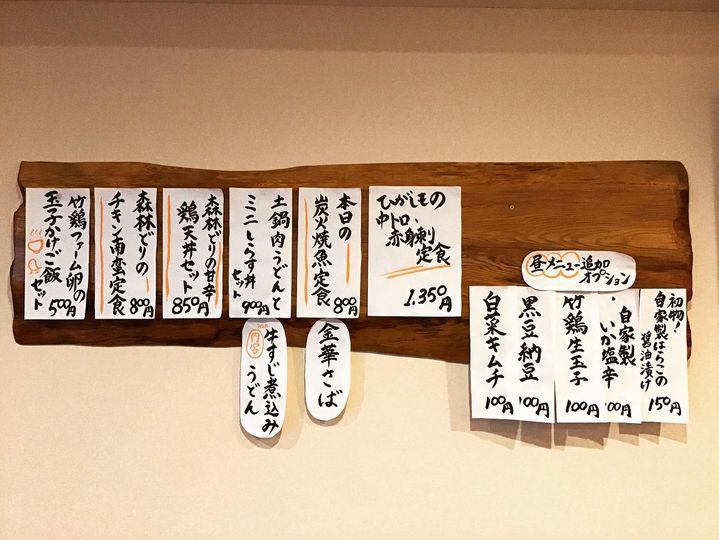 ひがしもの
中トロ、
赤身刺
定食
1.350円
本日の
炭火焼魚定食
800円
金華さば
土鍋肉うどんと
ミニしらす丼
セット
900円
内容
牛すじ煮込み
うどん
森林どりの甘辛
鶏天丼セット
850円
森林どりの
チキン南蛮定食
800円
竹鶏ファーム卵の
玉子かけご飯
セット
500円
昼メニュー追加
オプション
初物!
自家製はらこの
醤油漬け
150円
自家製
いか塩辛
100円
竹鶏生玉子
100円
黒豆納豆
100円
白菜キムチ
100円